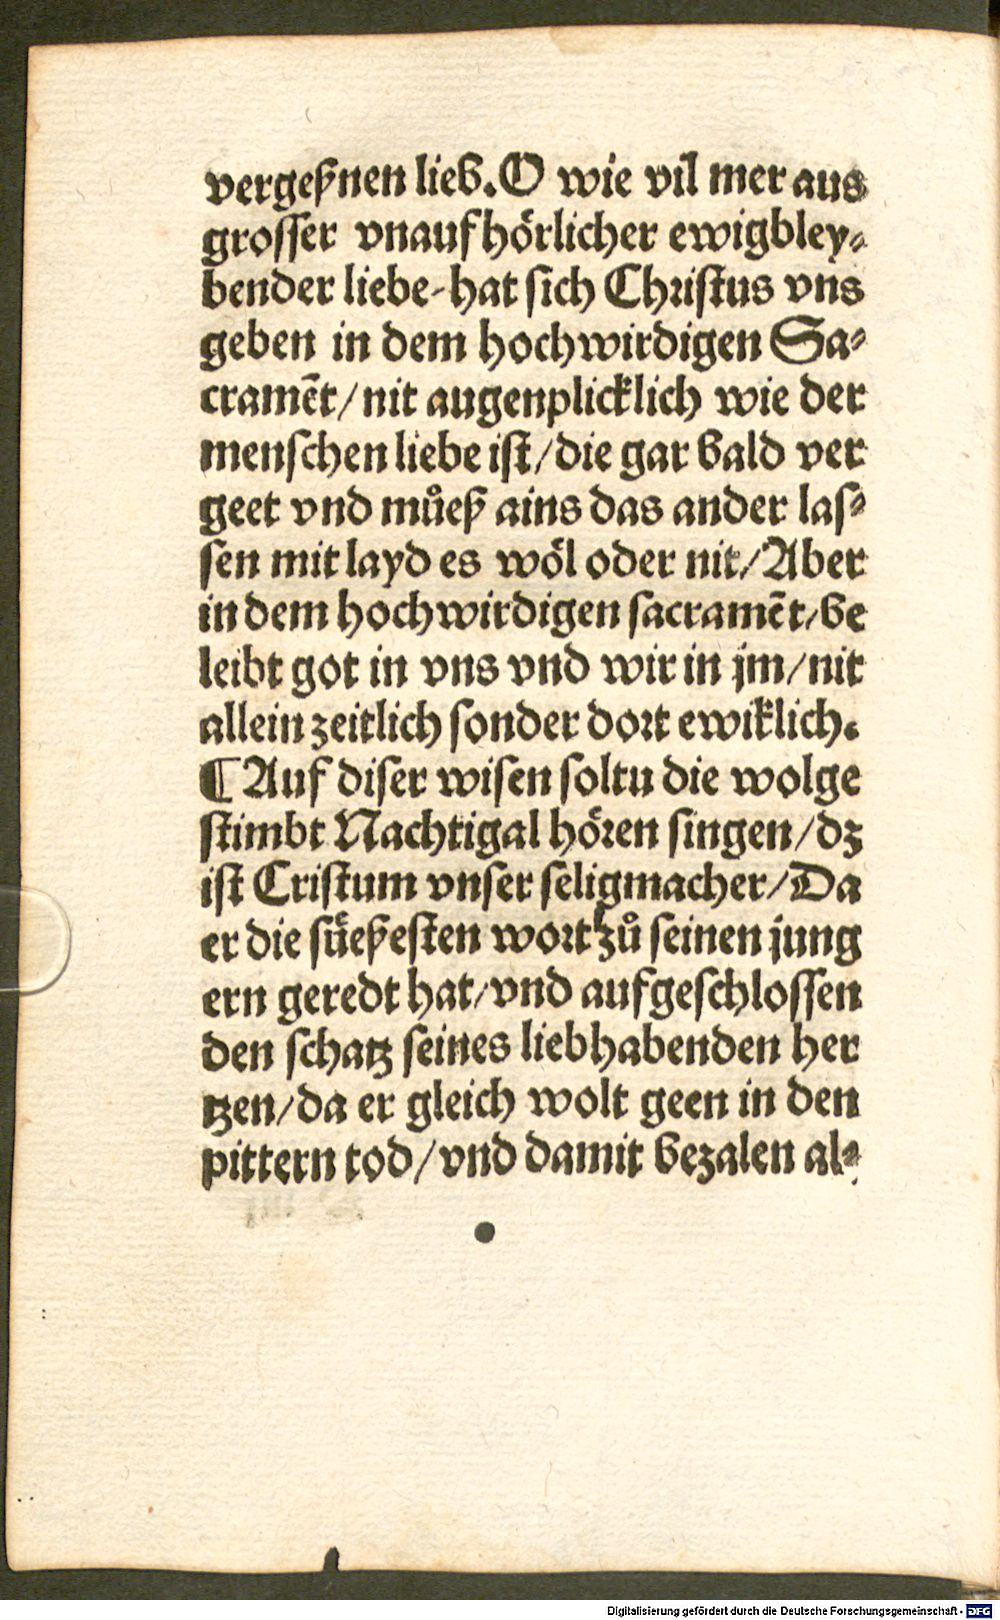 vergeßnen lieb. O wie vil mer aus
grosser vnaufhörlicher ewigbley⸗
bender liebe-hat sich Christus vns
geben in dem hochwirdigen Sa⸗
cramēt/nit augenplicklich wie der
menschen liebe ist/die gar bald ver
geet vnd můeß ains das ander las⸗
sen mit layd es wöl oder nit/Aber
in dem hochwirdigen sacramēt/be
leibt got in vns vnd wir in jm/nit
allein zeitlich sonder dort ewiklich.
¶ Auf diser wisen soltu die wolge
stimbt Nachtigal hören singen/dz
ist Cristum vnser seligmacher/Da
er die süeßesten wort zů seinen jung
ern geredt hat/vnd aufgeschlossen
den schatz seines liebhabenden her
tzen/da er gleich wolt geen in den
pittern tod/vnd damit bezalen al⸗
Digitalisierung gefördert durch die Deutsche Forschungsgemeinschaft - DFG